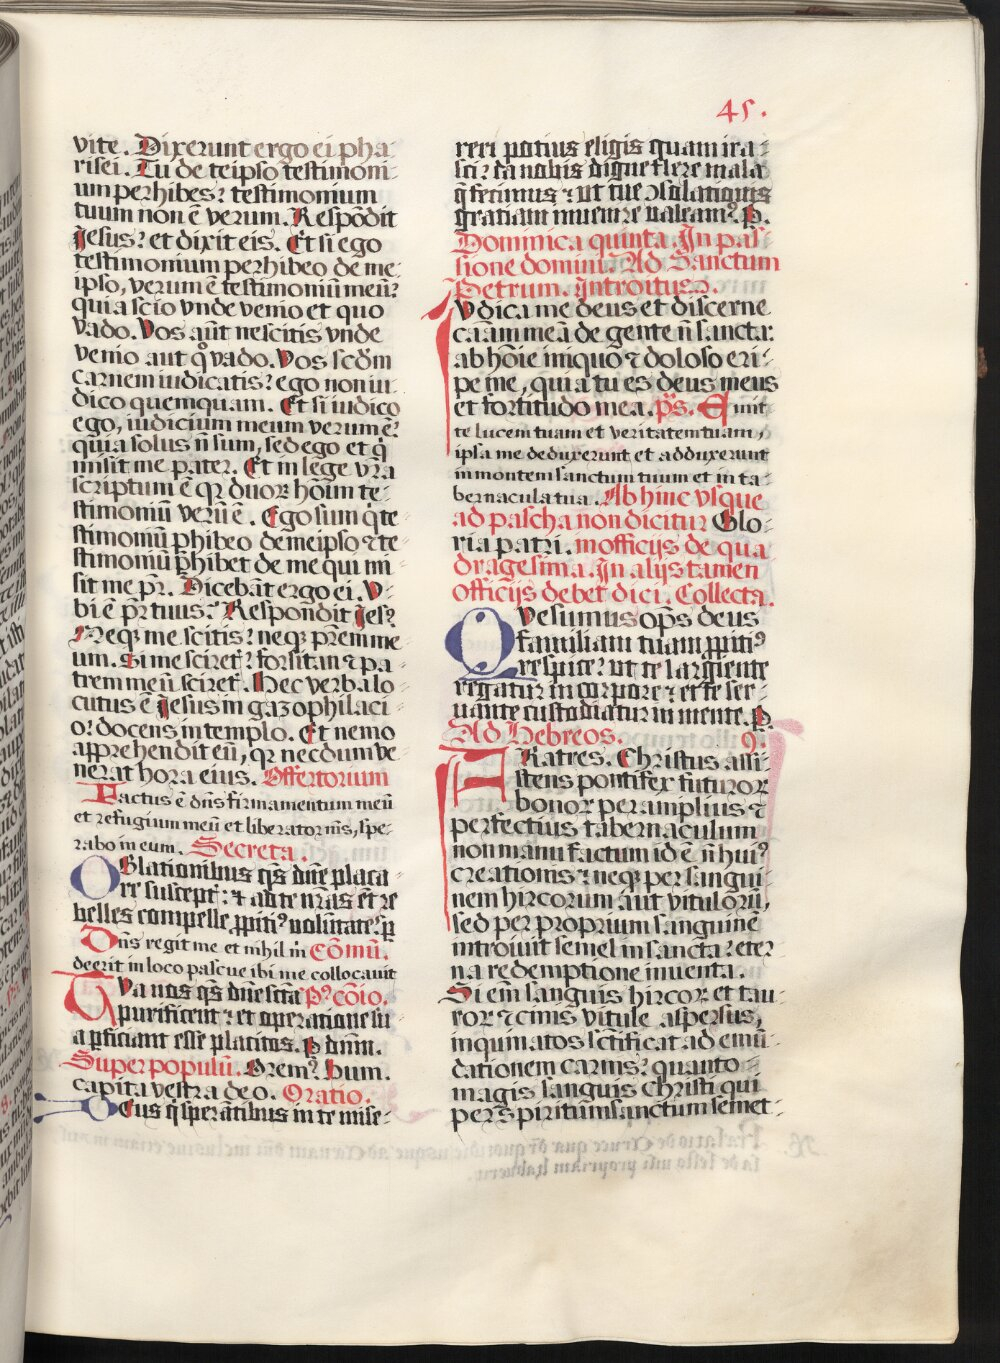 45.
vite. Dixerunt ergo ei pha-
risei. Tu de teipso testimoni-
um perhibes? testimonium
tuum non ē verum. Respōdit
Jesus? et dixit eis. Et si ego
testimonium perhibeo de me
ipso, verum ē testimoniū meū?
quia scio vnde venio et quo
vado. Vos aūt nescitis vnde
venio aut q̊ vado. Vos scd̄m
carnem iudicatis? ego non iu-
dico quemquam. Et si iudico
ego, iudicium meum verum ē?
quia solus n̄ sum, sed ego et q̇
misit me pater. Et in lege vr̄a
scriptum ē qꝛ duoꝝ hōim te-
stimoniū verū ē. Ego sum q̇ te
stimoniū ꝑhibeo de meipso ⁊ te
stimoniū ꝑhibet de me qui mi
sit me pr̄. Dicebāt ergo ei. V-
bi ē pr̄ tuus? Respondit Jesꝰ
Neqꝫ me scitis? neqꝫ pr̄em me
um. Si me sciret̄? forsitan ⁊ pa
trem meū sciret̄. Hec verba lo
cutus ē Jesus in gazophilaci
o? docens in templo. Et nemo
apprehendit eū, qꝛ necdum ve
nerat hora eius. Offertorium
Factus ē dn̄s firmamentum meū
et refugium meū et liberator ms̄, spe-
rabo in eum. Secreta.
Oblationibus qs̄ dn̄e placa
re suscept̄: ⁊ ad te nr̄as et re
belles compelle ꝓpitiꝰ volūtate?. ꝑ
Dn̄s regit me et nihil m̄ Cōmū.
deerit in loco pascue ibi me collocauit
Tua nos qs̄ dn̄e scta Pꝰ cōio.
purificent ⁊ et operatione su
a ꝑficiant esse placitos. ꝑ dnm̄.
Super populū. Oremꝰ. Hum.
capita vestra deo. Oratio.
Deus q̇ sperātibus in te mise-
reri potius eligis quam ira-
sci? da nobis digne flere mala
q̄ fecimus ⁊ ut tue ꝯsolationis
gratiam inuenire valeamꝰ. ꝑ.
Dominica quinta. In pas-
sione domini. Ad Sanctum
Petrum. Introitus.
Iudica me deus et discerne
cām meā de gente n̄ sancta:
ab hōie iniquo ⁊ doloso eri-
pe me, quia tu es deus meus
et fortitudo mea. ps̄. Emit-
te lucem tuam et veritatem tuam,
ipsa me deduxerunt et adduxerunt
in montem sanctum tuum et in ta-
bernacula tua. Ab hinc vsque
ad pascha non dicitur Glo-
ria patri. in officijs de qua
dragesima. In alijs tamen
officijs debet dici. Collecta.
Quesumus op̄s deus
familiam tuam ꝓpitiꝰ
respice? ut te largiente
regatur in corpore ⁊ et te ser-
uante custodiatur in mente. ꝑ.
Ad Hebreos. 9.
Fratres. Christus assi-
stens pontifex futuroꝝ
bonoꝝ per amplius ⁊
perfectius tabernaculum
non manu factum id ē n̄ huiꝰ
creationis ⁊ neqꝫ per sangui-
nem hircorum aut vituloꝝ,
sed per proprium sanguinē
introiuit semel in sancta? eter-
na redemptione inuenta.
Si em̄ sanguis hircoꝝ et tau-
roꝝ ⁊ cinis vitule aspersus,
inquinatos sc̄tificat ad emū-
dationem carnis? quanto
magis sanguis Christi qui
per spiritum sanctum semet-